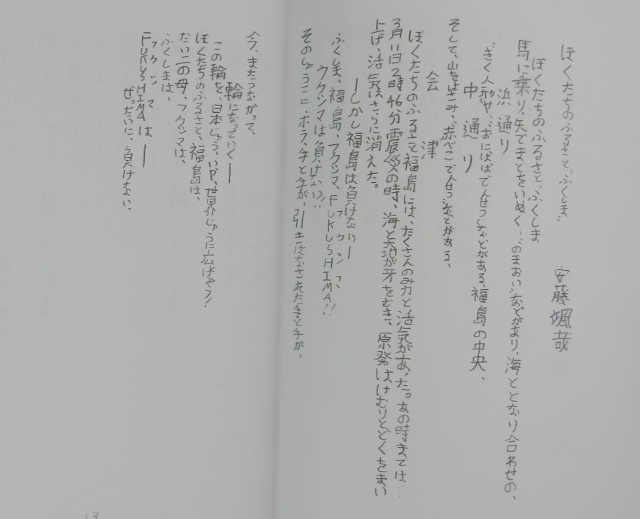 ぼくたちのふるさと、"ふくしま"
安藤颯哉
ぼくたちのふるさと、ふくしま
浜通り
馬に乗り、矢でまとをいぬく…"のまおい"などがあり、海ととなり合わせの、
中通り
"きく人形"や、"おにばばで人せつ"などがある、福島の中央、
会津
そして、山をよきみ、"赤べこで人せつ"などがある、
ぼくたちのふるさと福島には、たくさんのみ力と活気があった。あの時までは…
3月11日2時46分震災の時、海と大地が牙をむき、原発はけむりとどくをまい
上げ、活気はさらに消えた。
―しかし福島は負けない―
ふくしま、福島、フクシマ、FUKUSHIMA!!
フクシマ
フクシマは負けない!!
そのしょうこに、ホラ、手と手が、引きはなされた手と手が、
今、またつながって、
輪になっていく―
この輪を、日本じゅう、いや、世界じゅうに広げよう!
ぼくたちのふるさと、福島は、
だい二の母、フクシマは、
ふくしまは、
フクシマ
FUKUSHIMAは―
ぜったいに、負けない。
13